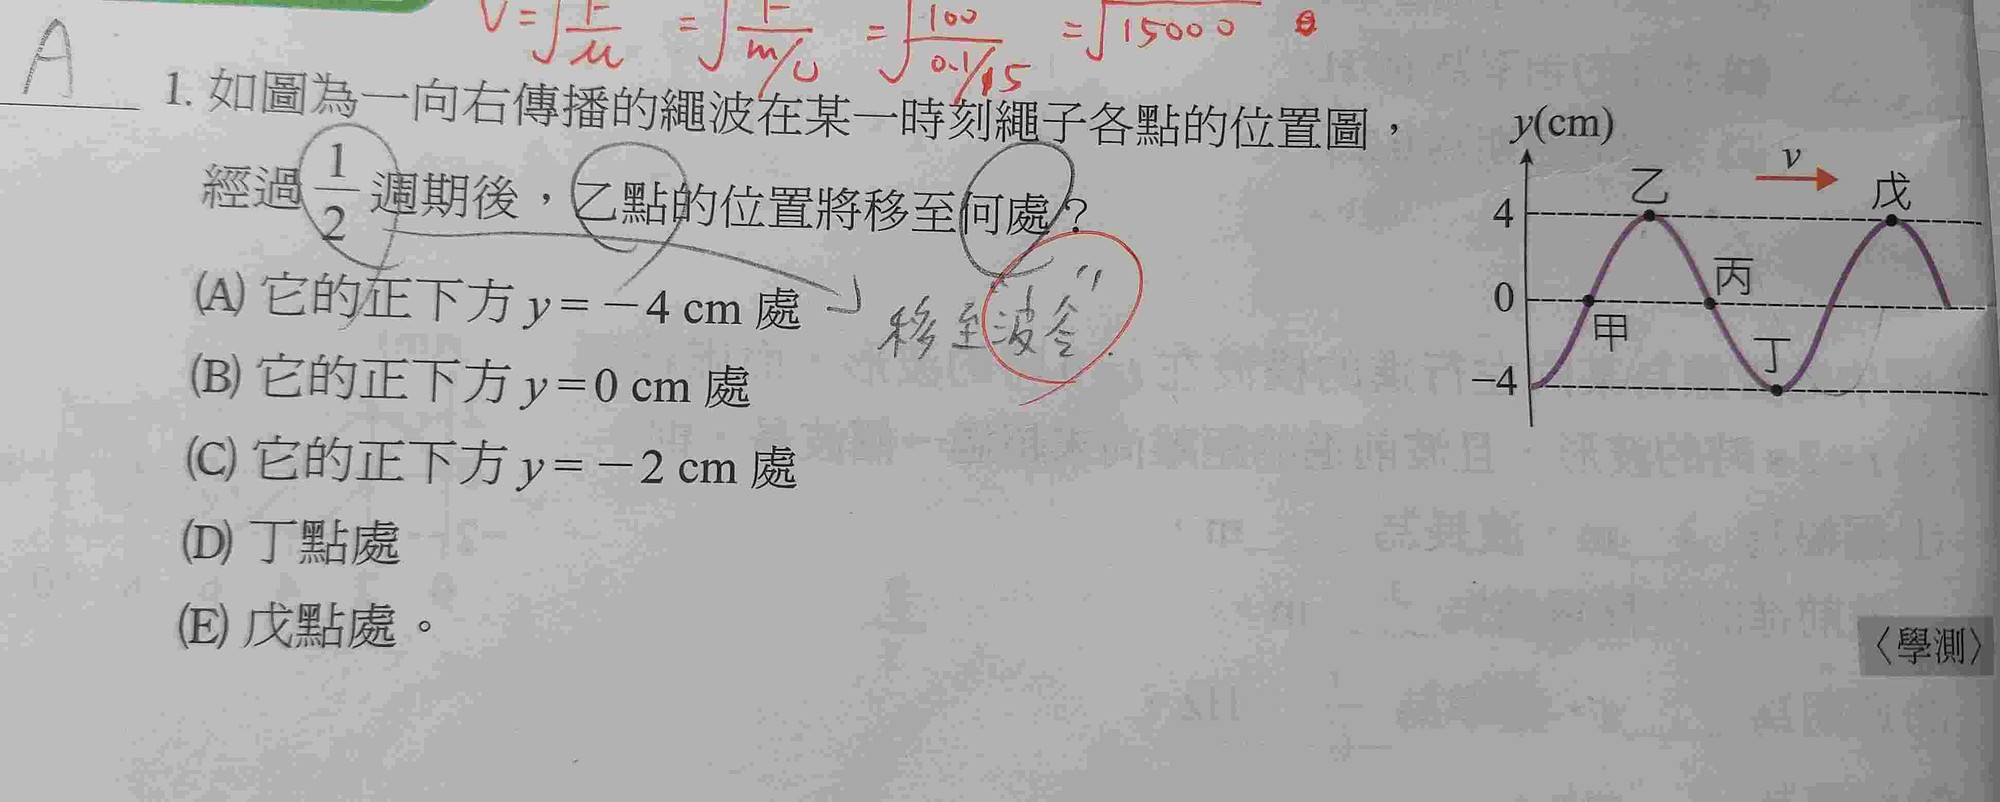 V=√F/μ =√F/m/L =√100/0.1/15 =√15000
A
1. 如圖為一向右傳播的繩波在某一時刻繩子各點的位置圖，
經過1/2週期後，乙點的位置將移至何處？
(A) 它的正下方 y=－4 cm 處
移至"波谷"
(B) 它的正下方 y=0 cm 處
(C) 它的正下方 y=－2 cm 處
(D) 丁點處
(E) 戊點處。
y(cm)
v
乙 戊
4
丙
0
甲
丁
−4
〈學測〉